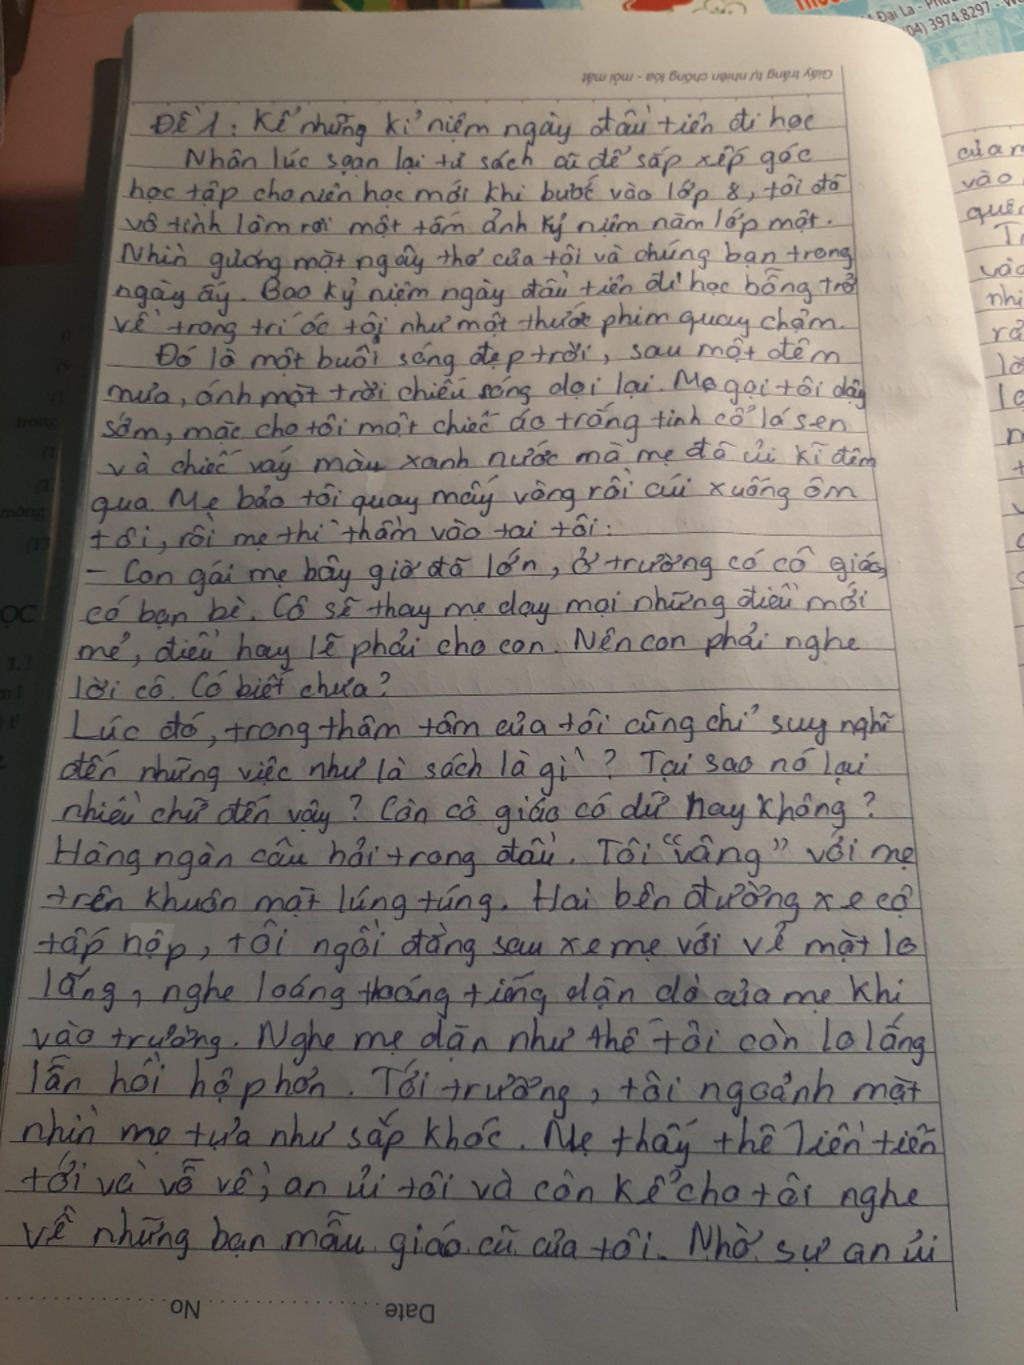 Đại La - Phư
(04) 3974.8297 - W
Giấy trắng tự nhiên chống lóa - mỏi mắt
Đề 1: Kể những kỉ niệm ngày đầu tiên đi học
Nhân lúc soạn lại tủ sách cũ để sắp xếp góc
học tập cho niên học mới khi bước vào lớp 8, tôi đã
vô tình làm rơi một tấm ảnh kỷ niệm năm lớp một.
Nhìn gương mặt ngây thơ của tôi và chúng bạn trong
ngày ấy. Bao kỷ niệm ngày đầu tiên đi học bỗng trở
về trong trí óc tôi như một thước phim quay chậm.
Đó là một buổi sáng đẹp trời, sau một đêm
mưa, ánh mặt trời chiếu sáng dọi lại. Mẹ gọi tôi dậy
sớm, mặc cho tôi một chiếc áo trắng tinh cổ lá sen
và chiếc váy màu xanh nước mà mẹ đã ủi kĩ đêm
qua. Mẹ bảo tôi quay mấy vòng rồi cúi xuống ôm
tôi, rồi mẹ thì thầm vào tai tôi:
- Con gái mẹ bây giờ đã lớn, ở trường có cô giáo,
có bạn bè. Cô sẽ thay mẹ dạy mọi những điều mới
mẻ, điều hay lẽ phải cho con. Nên con phải nghe
lời cô. Có biết chưa?
Lúc đó, trong thâm tâm của tôi cũng chỉ suy nghĩ
đến những việc như là sách là gì? Tại sao nó lại
nhiều chữ đến vậy? Còn cô giáo có dữ hay không?
Hàng ngàn câu hỏi trong đầu. Tôi "vâng" với mẹ
trên khuôn mặt lúng túng. Hai bên đường xe cộ
tấp nập, tôi ngồi đằng sau xe mẹ với vẻ mặt lo
lắng, nghe loáng thoáng tiếng dặn dò của mẹ khi
vào trường. Nghe mẹ dặn như thế tôi còn lo lắng
lẫn hồi hộp hơn. Tới trường, tôi ngoảnh mặt
nhìn mẹ tựa như sắp khóc. Mẹ thấy thế liền tiến
tới và vỗ về, an ủi tôi và còn kể cho tôi nghe
về những bạn mẫu giáo cũ của tôi. Nhờ sự an ủi
No
Date
của m
vào
quên